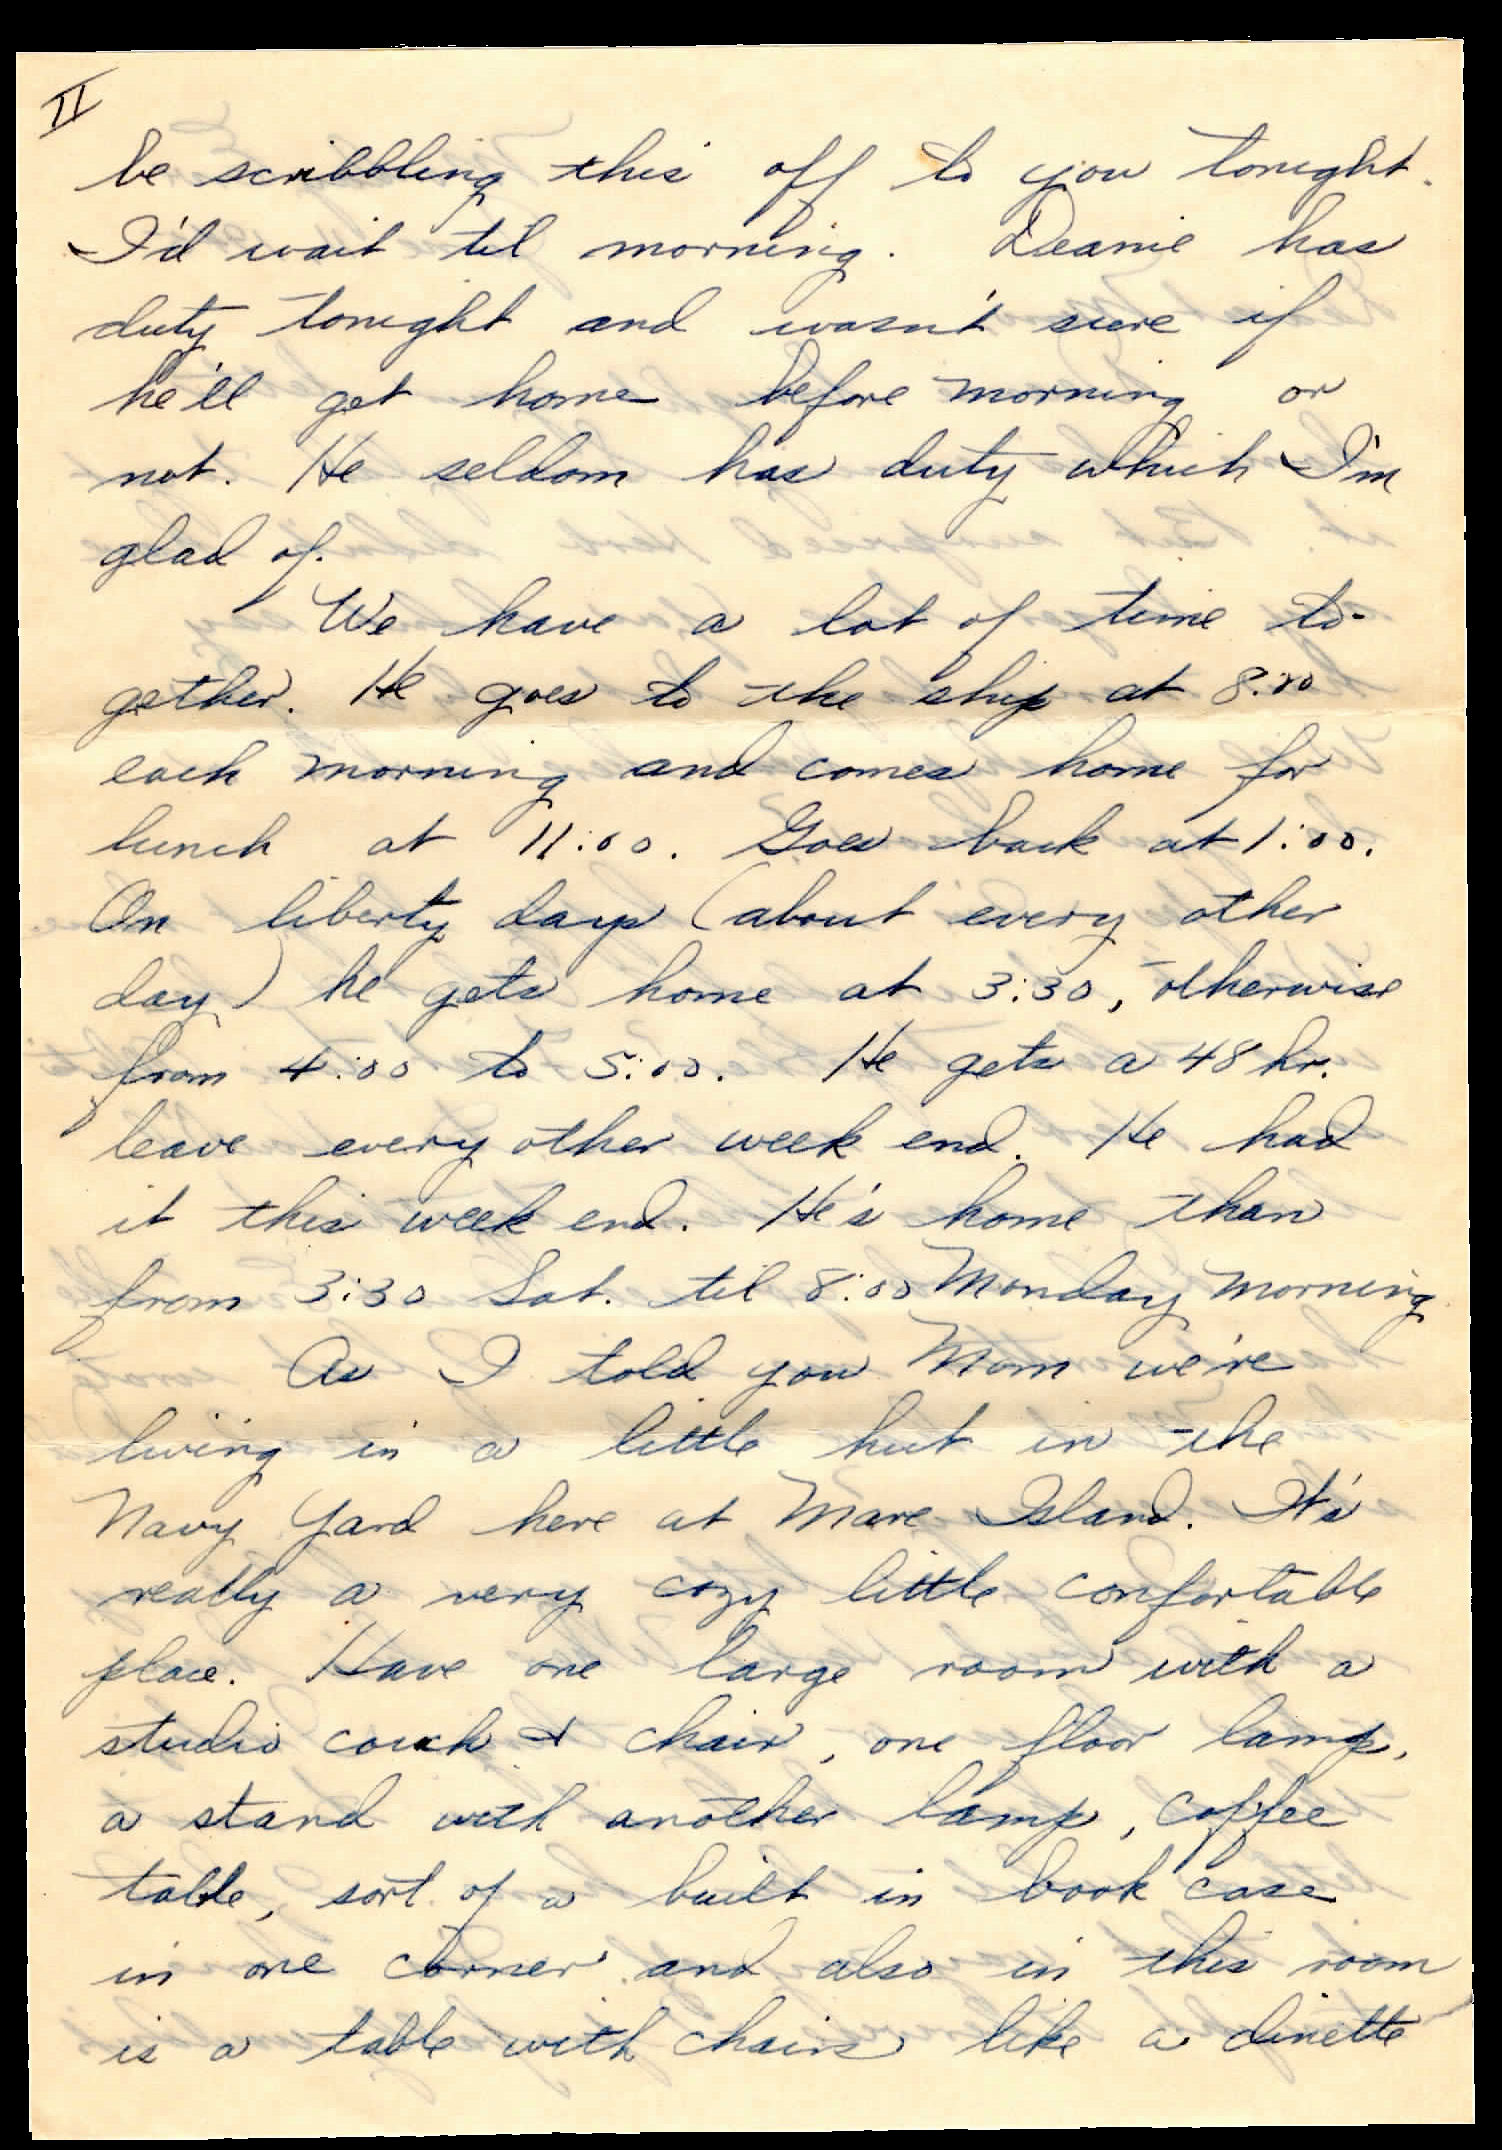 II
be scribbling this off to you tonight.
I'd wait til morning. Deanie has
duty tonight and wasn't sure if
he'll get home before morning or
not. He seldom has duty which I'm
glad of.
We have a lot of time to-
gether. He goes to the ship at 8:00
each morning and comes home for
lunch at 11:00. Goes back at 1:00.
On liberty days (about every other
day) he gets home at 3:30, otherwise
from 4:00 to 5:00. He gets a 48 hr.
leave every other week end. He had
it this week end. He's home than
from 3:30 Sat. til 8:00 Monday morning
As I told you Mom we're
living in a little hut in the
Navy Yard here at Mare Island. It's
really a very cozy little confortable
place. Have one large room with a
studio couch & chair, one floor lamp,
a stand with another lamp, coffee
table, sort of a built in book case
in one corner and also in this room
is a table with chairs like a dinette